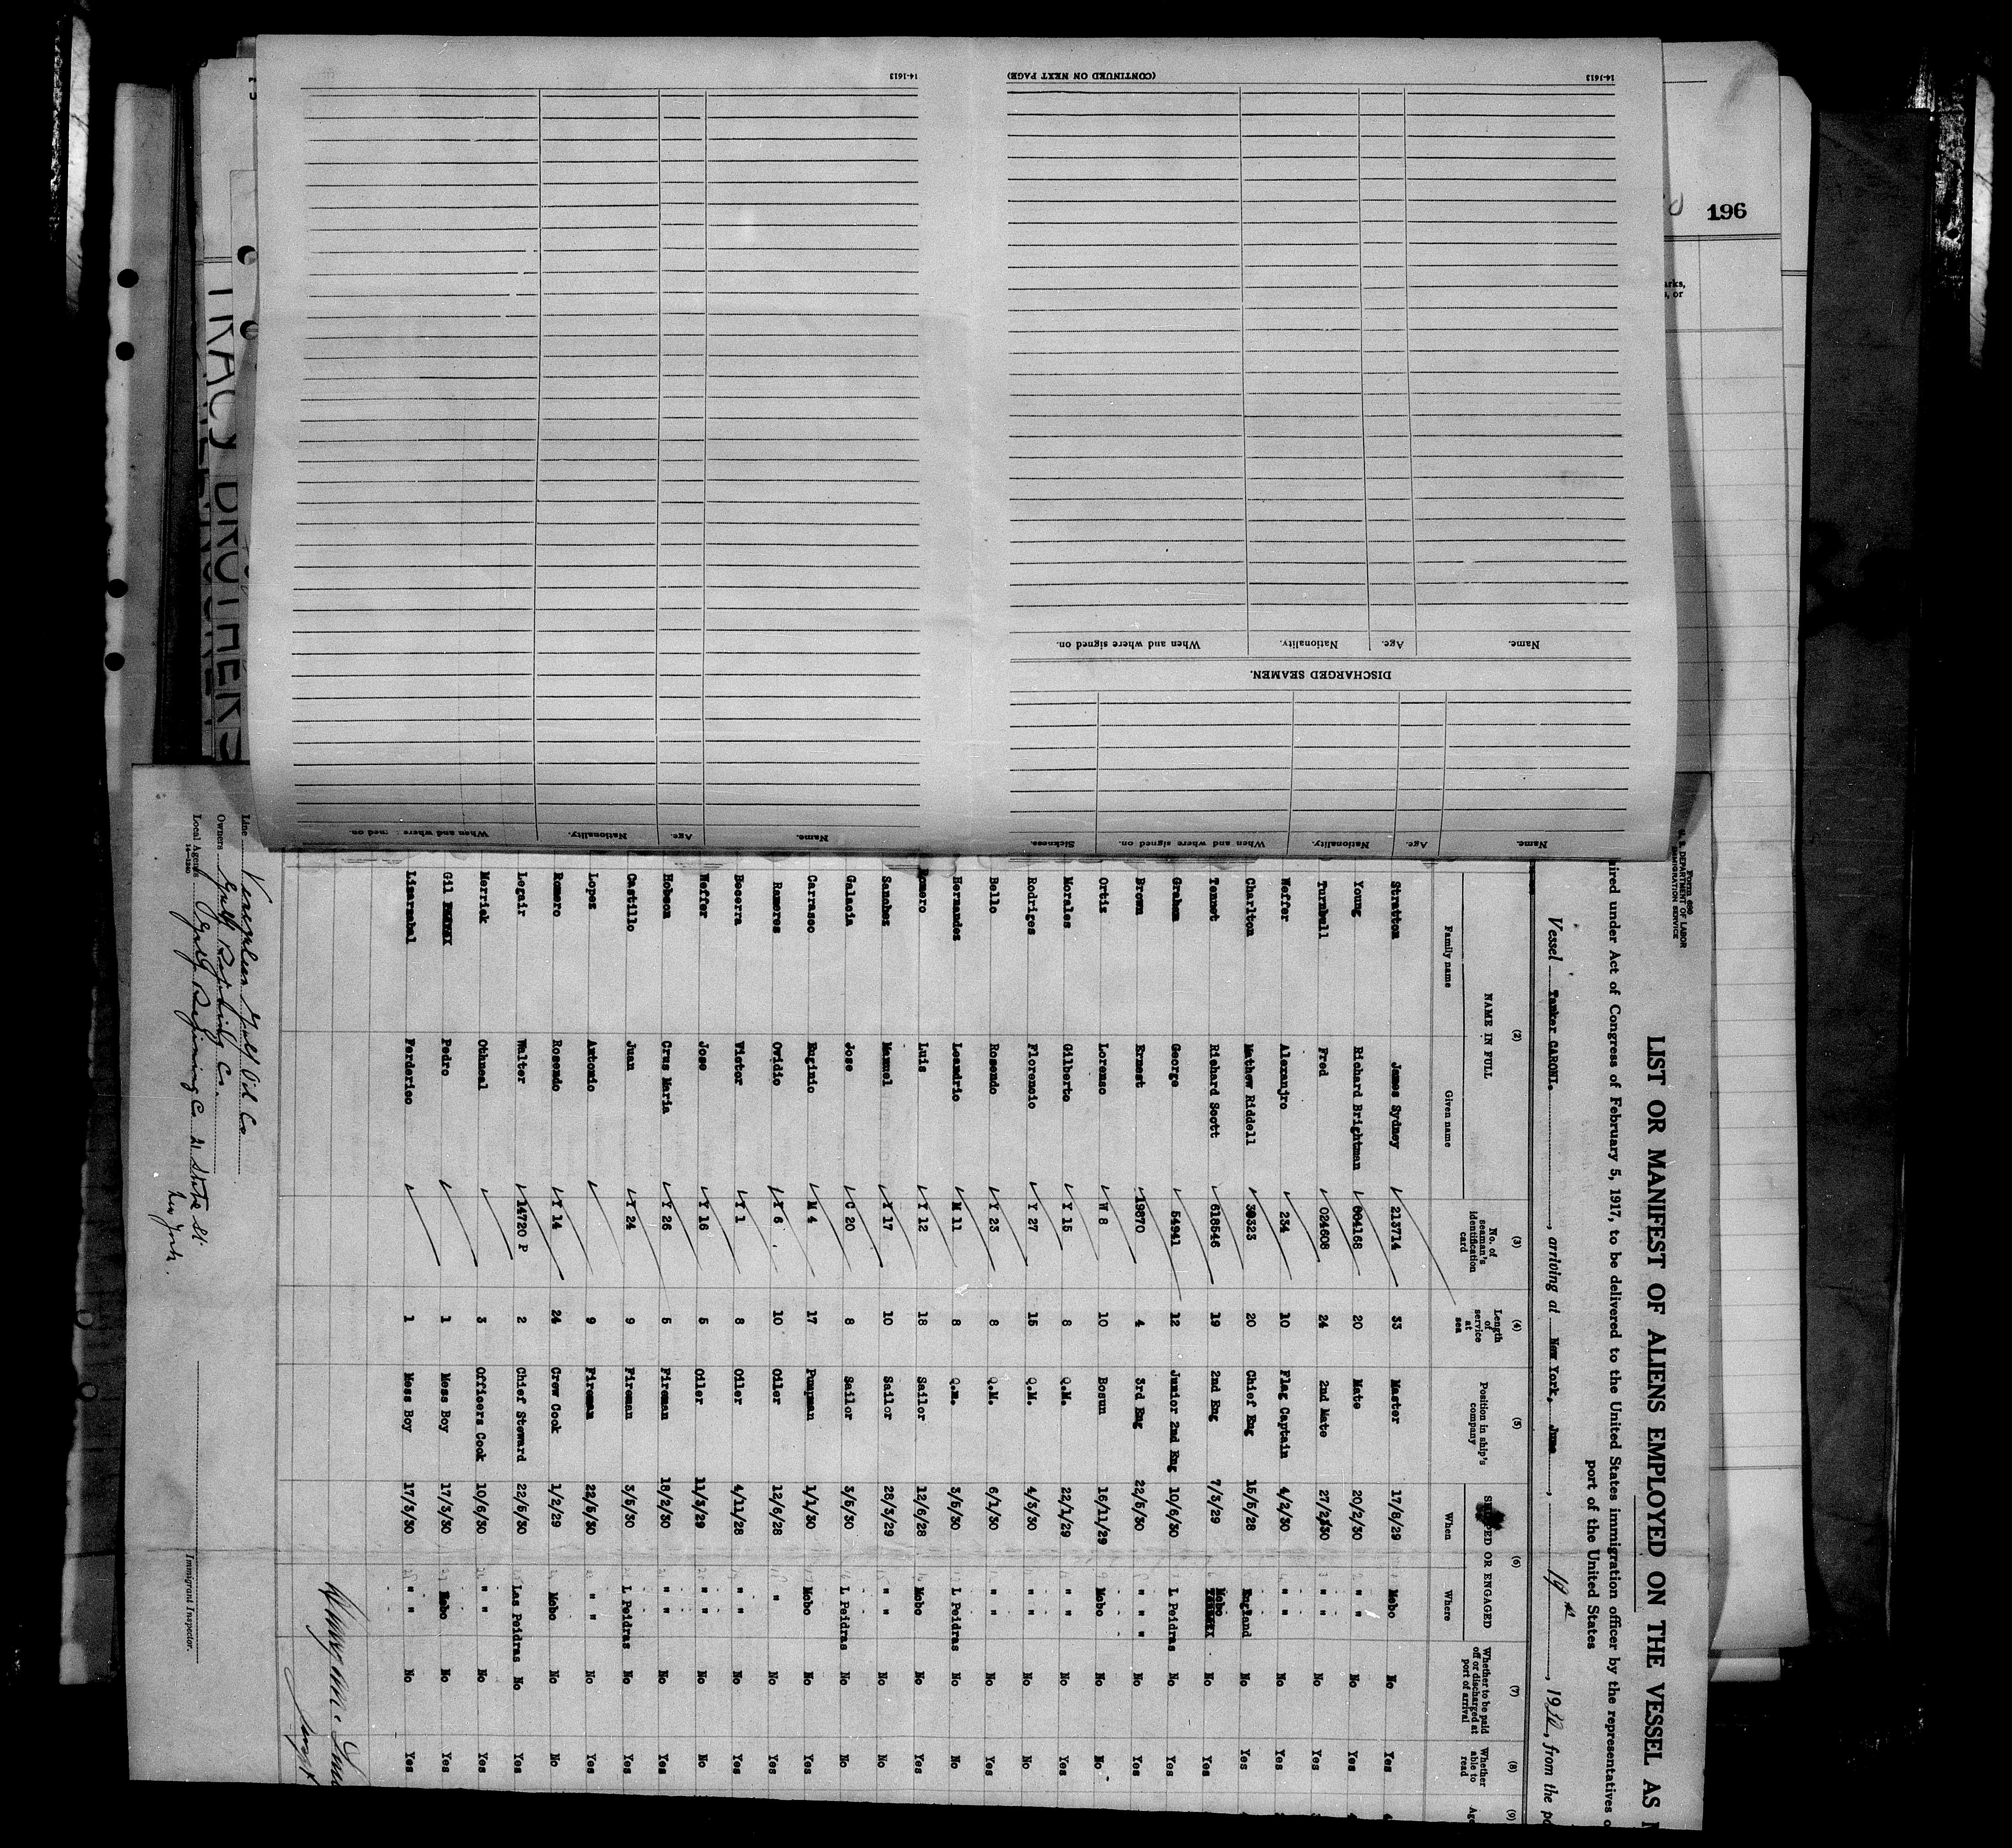 14-1613
(CONTINUED ON NEXT PAGE)
14-1613
196
arks,
s, or
Name. Age. Nationality. When and where signed on.
DISCHARGED SEAMEN.
Name. Age. Nationality. When and where signed on. Sickness.
Name. Age. Nationality. When and where
TRACY BROTHERS
Form 689
U. S. DEPARTMENT OF LABOR
IMMIGRATION SERVICE
LIST OR MANIFEST OF ALIENS EMPLOYED ON THE VESSEL AS
uired under Act of Congress of February 5, 1917, to be delivered to the United States immigration officer by the representatives
port of the United States
Vessel Tanker CARONI. , arriving at New York, June , 19th , 1930, from the po
(2) (3) (4) (5) (6) (7) (8) (9)
NAME IN FULL
Family name Given name
No. of seaman's identification card
Length of service at sea
Position in ship's company
SHIPPED OR ENGAGED
When Where
Whether to be paid off or discharged at port of arrival
Whether able to read
Age
Stratton James Sydney 213714 33 Master 17/8/29 Mcbo No Yes
Young Richard Brightman 604168 20 Mate 20/2/30 " " No Yes
Turnbull Fred 024608 24 2nd Mate 27/2/30 " " No Yes
Weffer Alexanjro 234 10 Flag Captain 4/2/30 " " No Yes
Charlton Mathew Riddell 39323 20 Chief Eng 15/5/28 England No Yes
Tennet Richard Scott 618546 19 2nd Eng 7/3/29 Mcbo No Yes
Graham George 54941 12 Junior 2nd Eng 10/6/30 L Peidras No Yes
Brown Ernest 19870 4 3rd Eng 22/5/30 " " No Yes
Ortis Lorenso W 8 10 Bosun 16/11/29 Mcbo No No
Morales Gilberto Y 15 8 Q.M. 22/1/29 " " No Yes
Rodriges Florencio Y 27 15 Q.M. 4/3/30 " " No No
Bello Rosendo Y 23 8 Q.M. 6/1/30 " " No Yes
Hernandes Leandrio M 11 8 Q.M. 3/5/30 L Peidras No No
Romero Luis Y 12 18 Sailor 12/6/28 Mcbo No Yes
Sanches Manuel Y 17 10 Sailor 28/3/29 " " No No
Galacia Jose C 20 8 Sailor 3/5/30 L Peidras No No
Carrasco Euginio M 4 17 Pumpman 1/1/30 Mcbo No Yes
Rameres Ovidio Y 6 10 Oiler 12/6/28 " No Yes
Becerra Victor Y 1 8 Oiler 4/11/28 " " No Yes
Weffer Jose Y 16 5 Oiler 11/3/29 " " No No
Hobson Crus Maria Y 26 5 Fireman 18/2/30 " " No Yes
Castillo Juan Y 24 9 Fireman 3/5/30 L Peidras No Yes
Lopez Antonio 9 Fireman 22/5/30 " " No Yes
Romero Rosendo Y 14 24 Crew Cook 1/2/29 Mcbo No No
Legair Walter 14720 P 2 Chief Steward 22/5/30 Las Peidras No Yes
Merrick Othneal 3 Officers Cook 10/6/30 " " No Yes
Gil Pedro 1 Mess Boy 17/3/30 Mcbo No Yes
Linarmabal Ferderico 1 Mess Boy 17/3/30 " " No Yes
Line Venezuelan Gulf Oil Co
Owners Gulf Refining Co.
Local Agents Gulf Refining Co 21 State St.
New York.
14-1240
Immigrant Inspector.